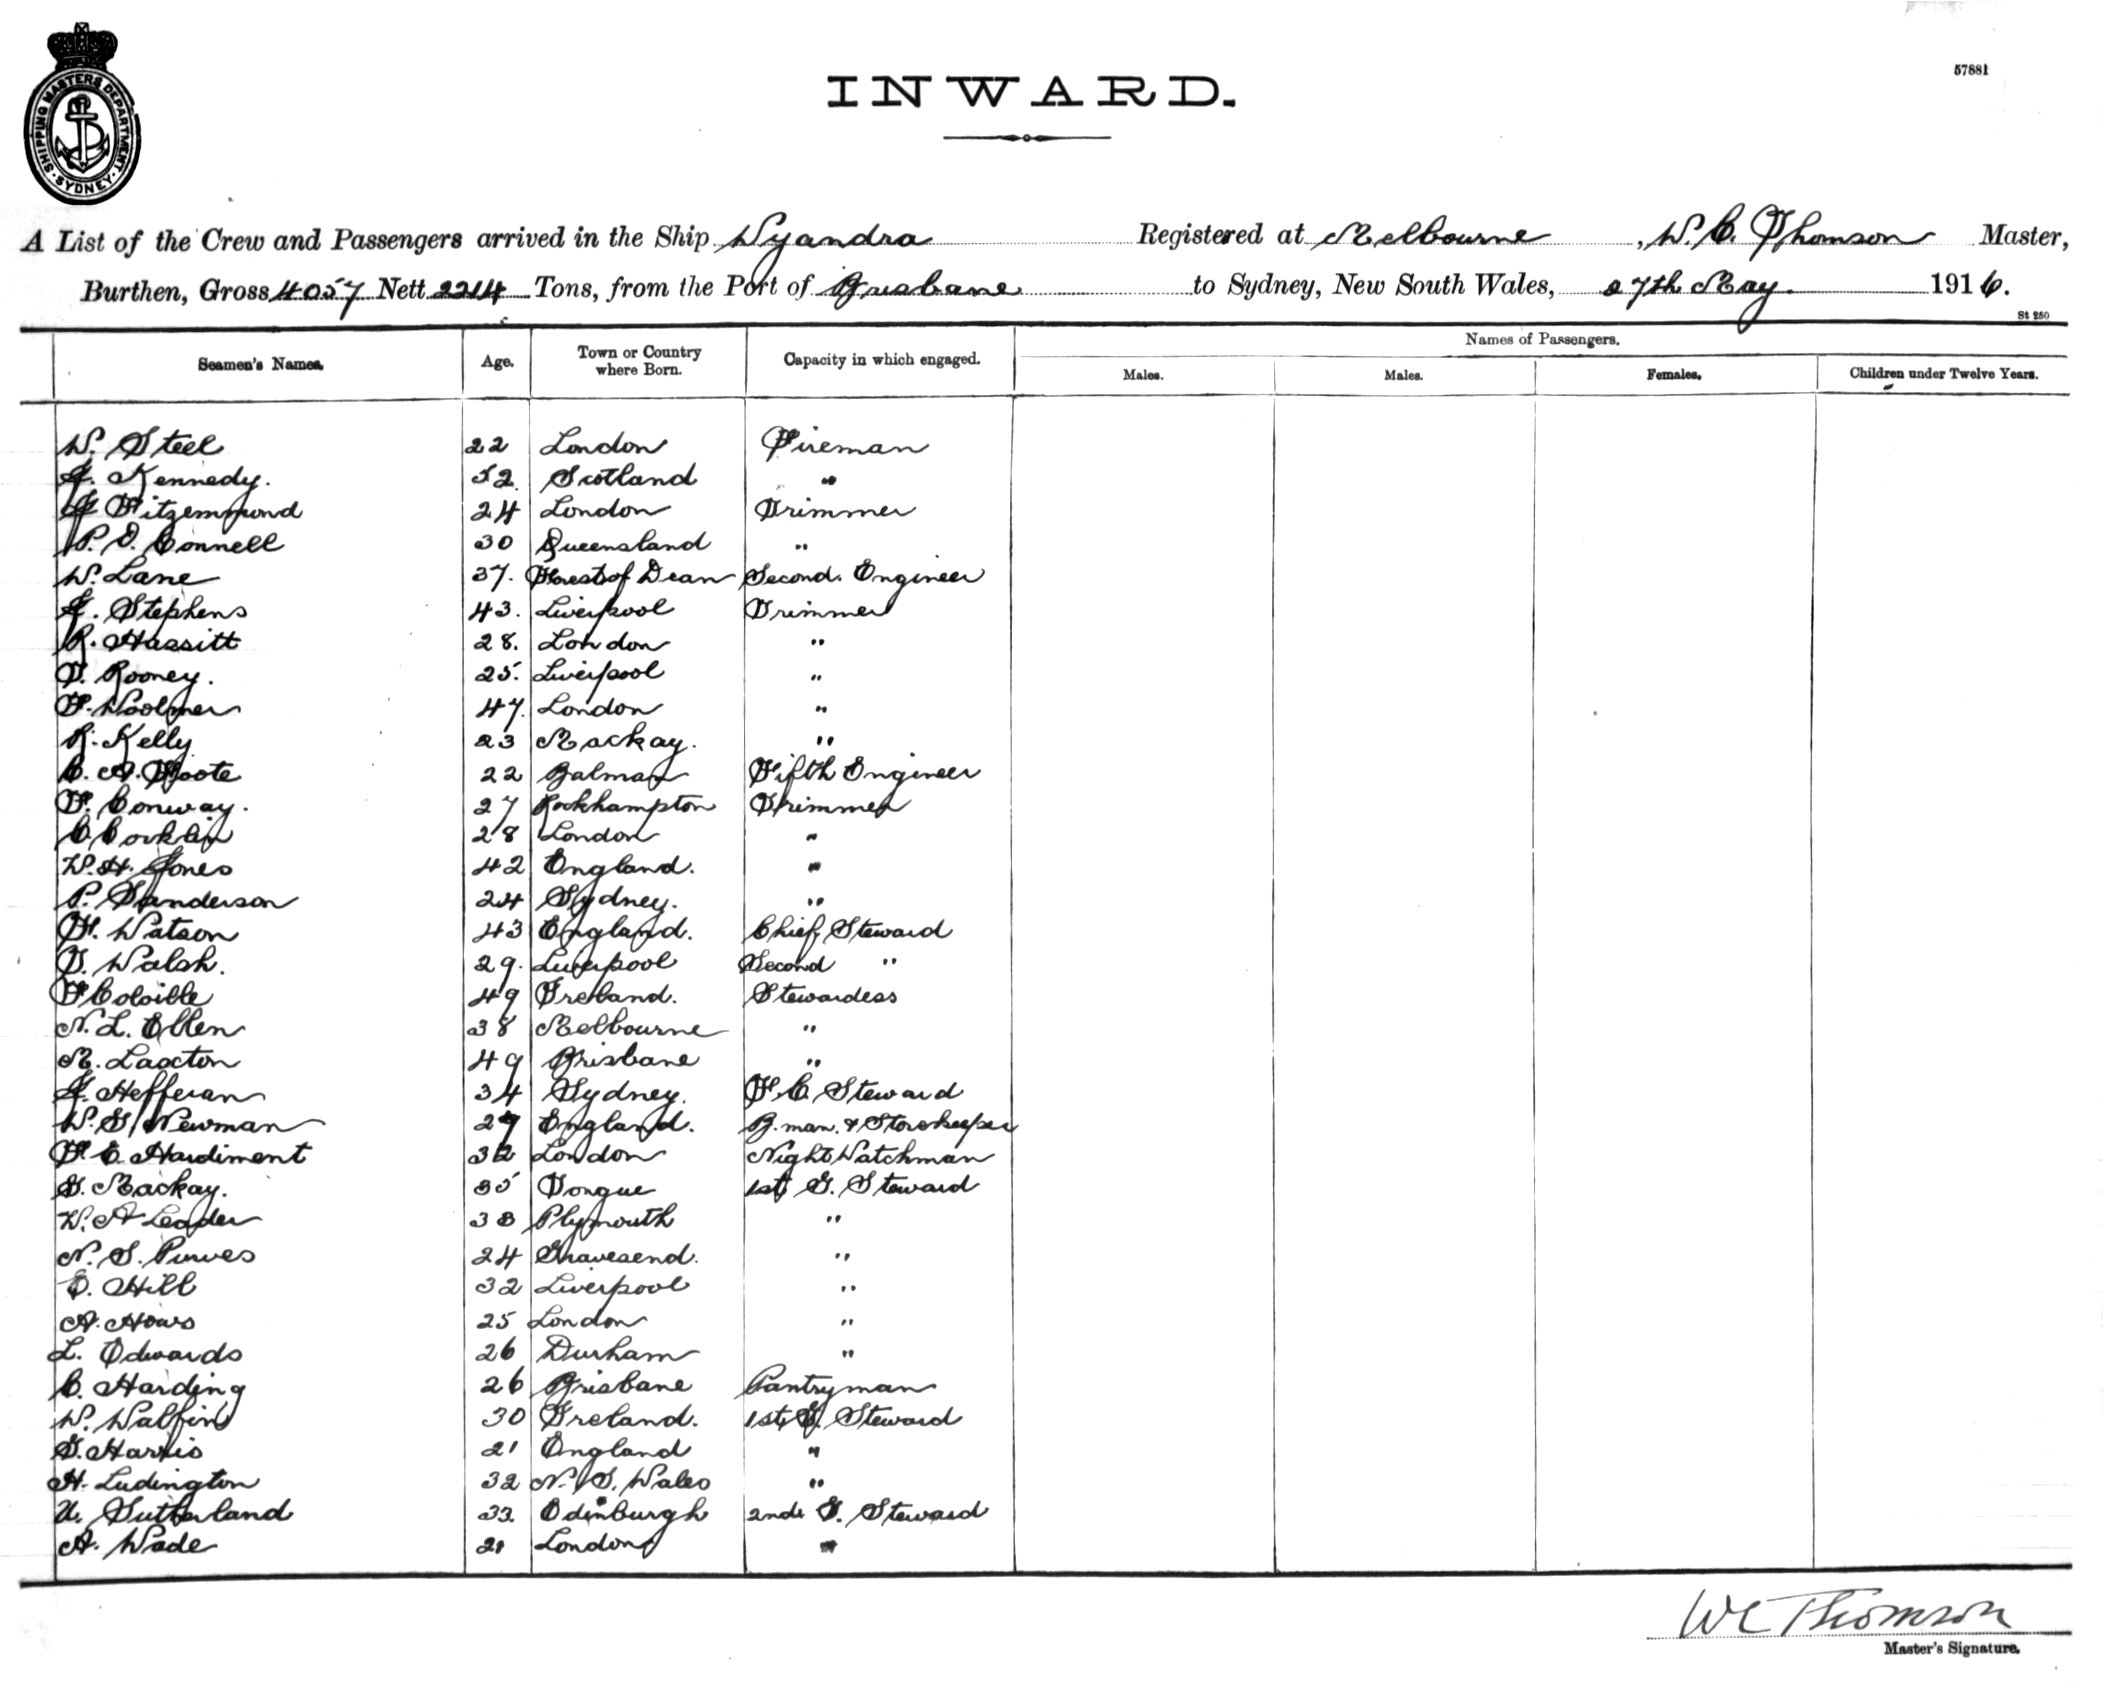 SHIPPING MASTERS DEPARTMENT SYDNEY
57881
INWARD.
A List of the Crew and Passengers arrived in the Ship Wyandra Registered at Melbourne, W. C. Thomson Master,
Burthen, Gross 4057 Nett 2214 Tons, from the Port of Brisbane to Sydney, New South Wales, 27th May. 1916.
St 250
Seamen's Names. Age. Town or Country where Born. Capacity in which engaged. Names of Passengers.
Males. Males. Females. Children under Twelve Years.
W. Steel 22 London Fireman
J. Kennedy. 52 Scotland "
J Fitzemmond 24 London Trimmer
P. O. Connell 30 Queensland "
W. Lane 37. Forest of Dean Second. Engineer
J. Stephens 43. Liverpool Trimmer
R. Hassitt 28. London "
T. Rooney. 25. Liverpool "
F. Woolmer 47. London "
R. Kelly 23 Mackay. "
C. A. Foote 22 Balmain Fifth Engineer
F. Conway. 27 Rockhampton Trimmer
C. 28 London "
W. H. Jones 42 England. "
P. Sanderson 24 Sydney. "
F. Watson 43 England. Chief Steward
T. Walsh. 29. Liverpool Second "
F Colville 49 Ireland. Stewardess
N. L. Ellen 38 Melbourne "
M. Laxton 49 Brisbane "
J. Hefferan 34 Sydney. F. C. Steward
W. G. Newman England. B. man. & Storekeeper
F E Hardiment 32 London Night Watchman
G. Mackay. 35 Tongue 1st G. Steward
W. A Leader 38 Plymouth "
N. S. Purves 24 Gravesend. "
E. Hill 32 Liverpool "
A. Hows 25 London "
L. Edwards 26 Durham "
C. Harding 26 Brisbane Pantryman
W. Walpin 30 Ireland. 1st G. Steward
G. Harris 21 England "
H. Ludington 32 N. S. Wales "
A. Sutherland 33. Edinburgh 2nd G. Steward
A. Wade 21 London "
W C Thomson
Master's Signature.